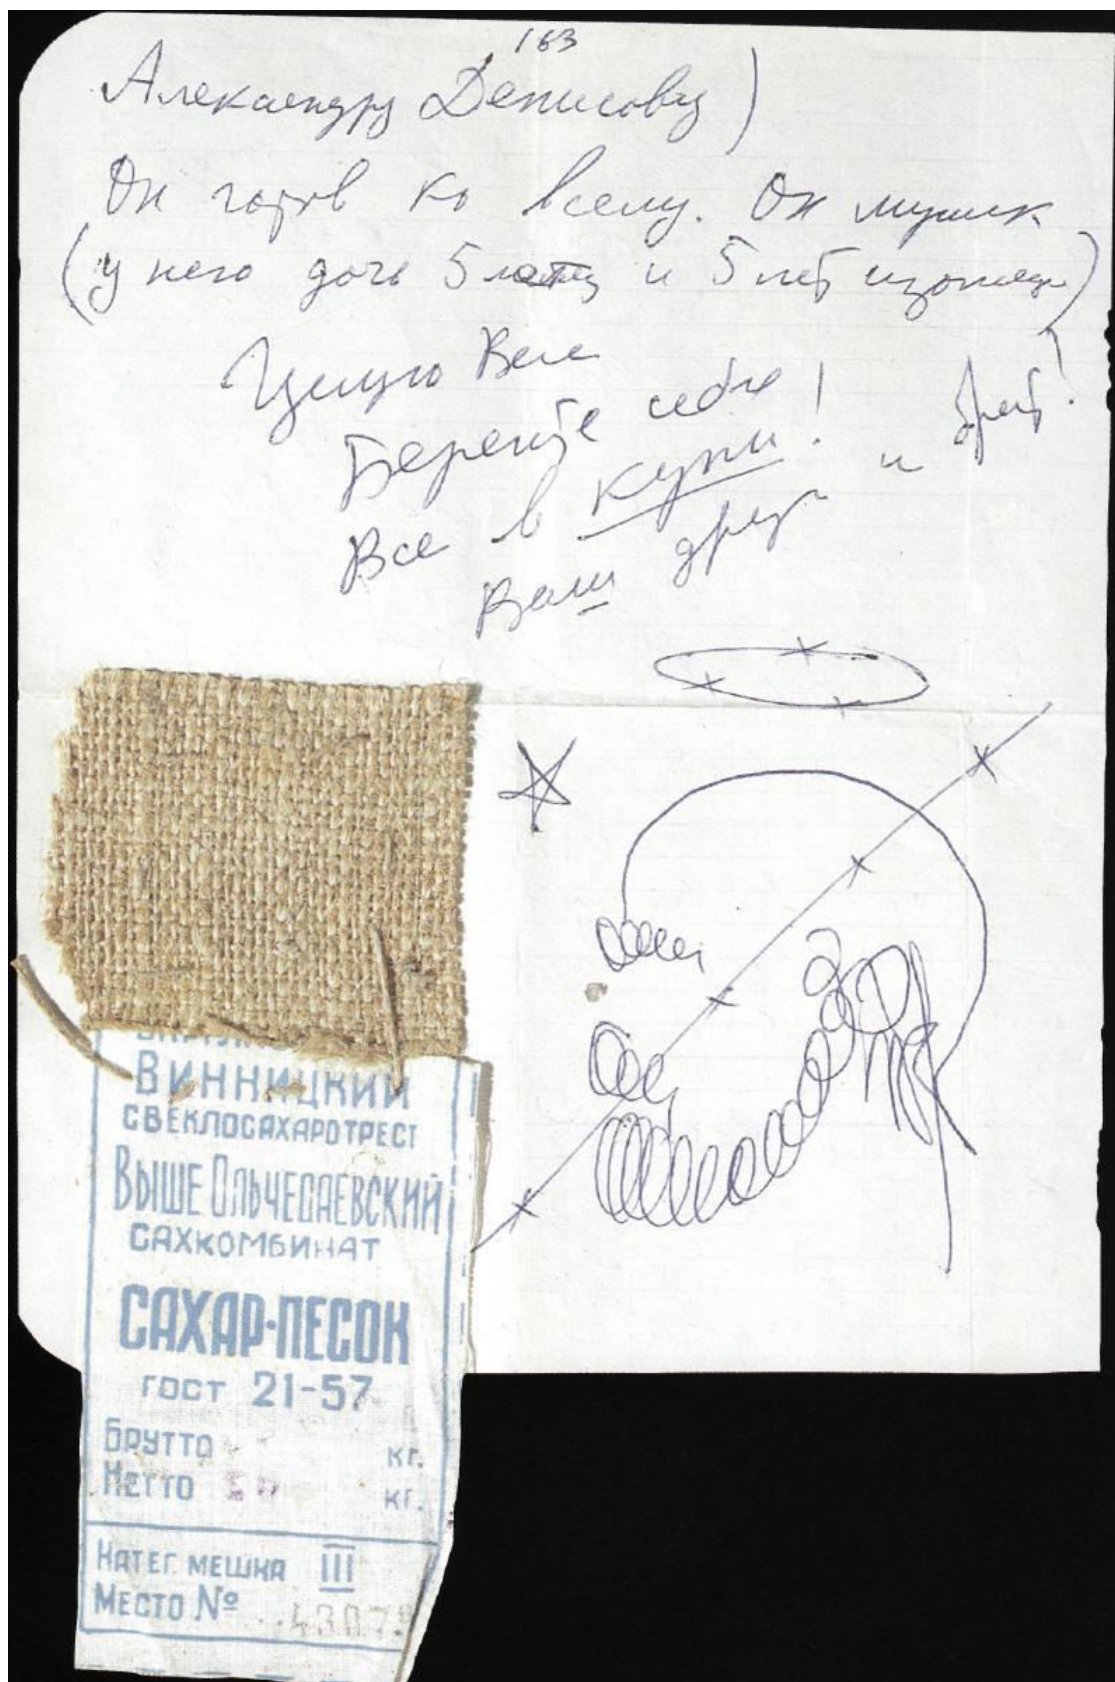 163
Александру Денисову)
Он готов ко всему. Он мужик
(у него дочь 5 и 5 лет
Целую Всех
Берегите себя
Все в кучи!
Ваш друг и брат!
ВИННИЦКИЙ
СВЕКЛОСАХАРОТРЕСТ
ВЫШЕОЛЬЧЕДАЕВСКИЙ
САХКОМБИНАТ
САХАР-ПЕСОК
ГОСТ 21-57
БРУТТО КГ.
НЕТТО 50 КГ.
КАТЕГ. МЕШКА III
МЕСТО №